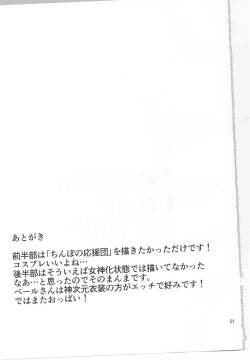 あとがき
前半部は「ちんぽの応援団」を描きたかっただけです！
コスプレいいよね…
後半部はそういえば女神化状態では描いてなかった
なあ…と思ったのでそのまんまです。
ベールさんは神次元衣装の方がエッチで好みです！
ではまたおっぱい！